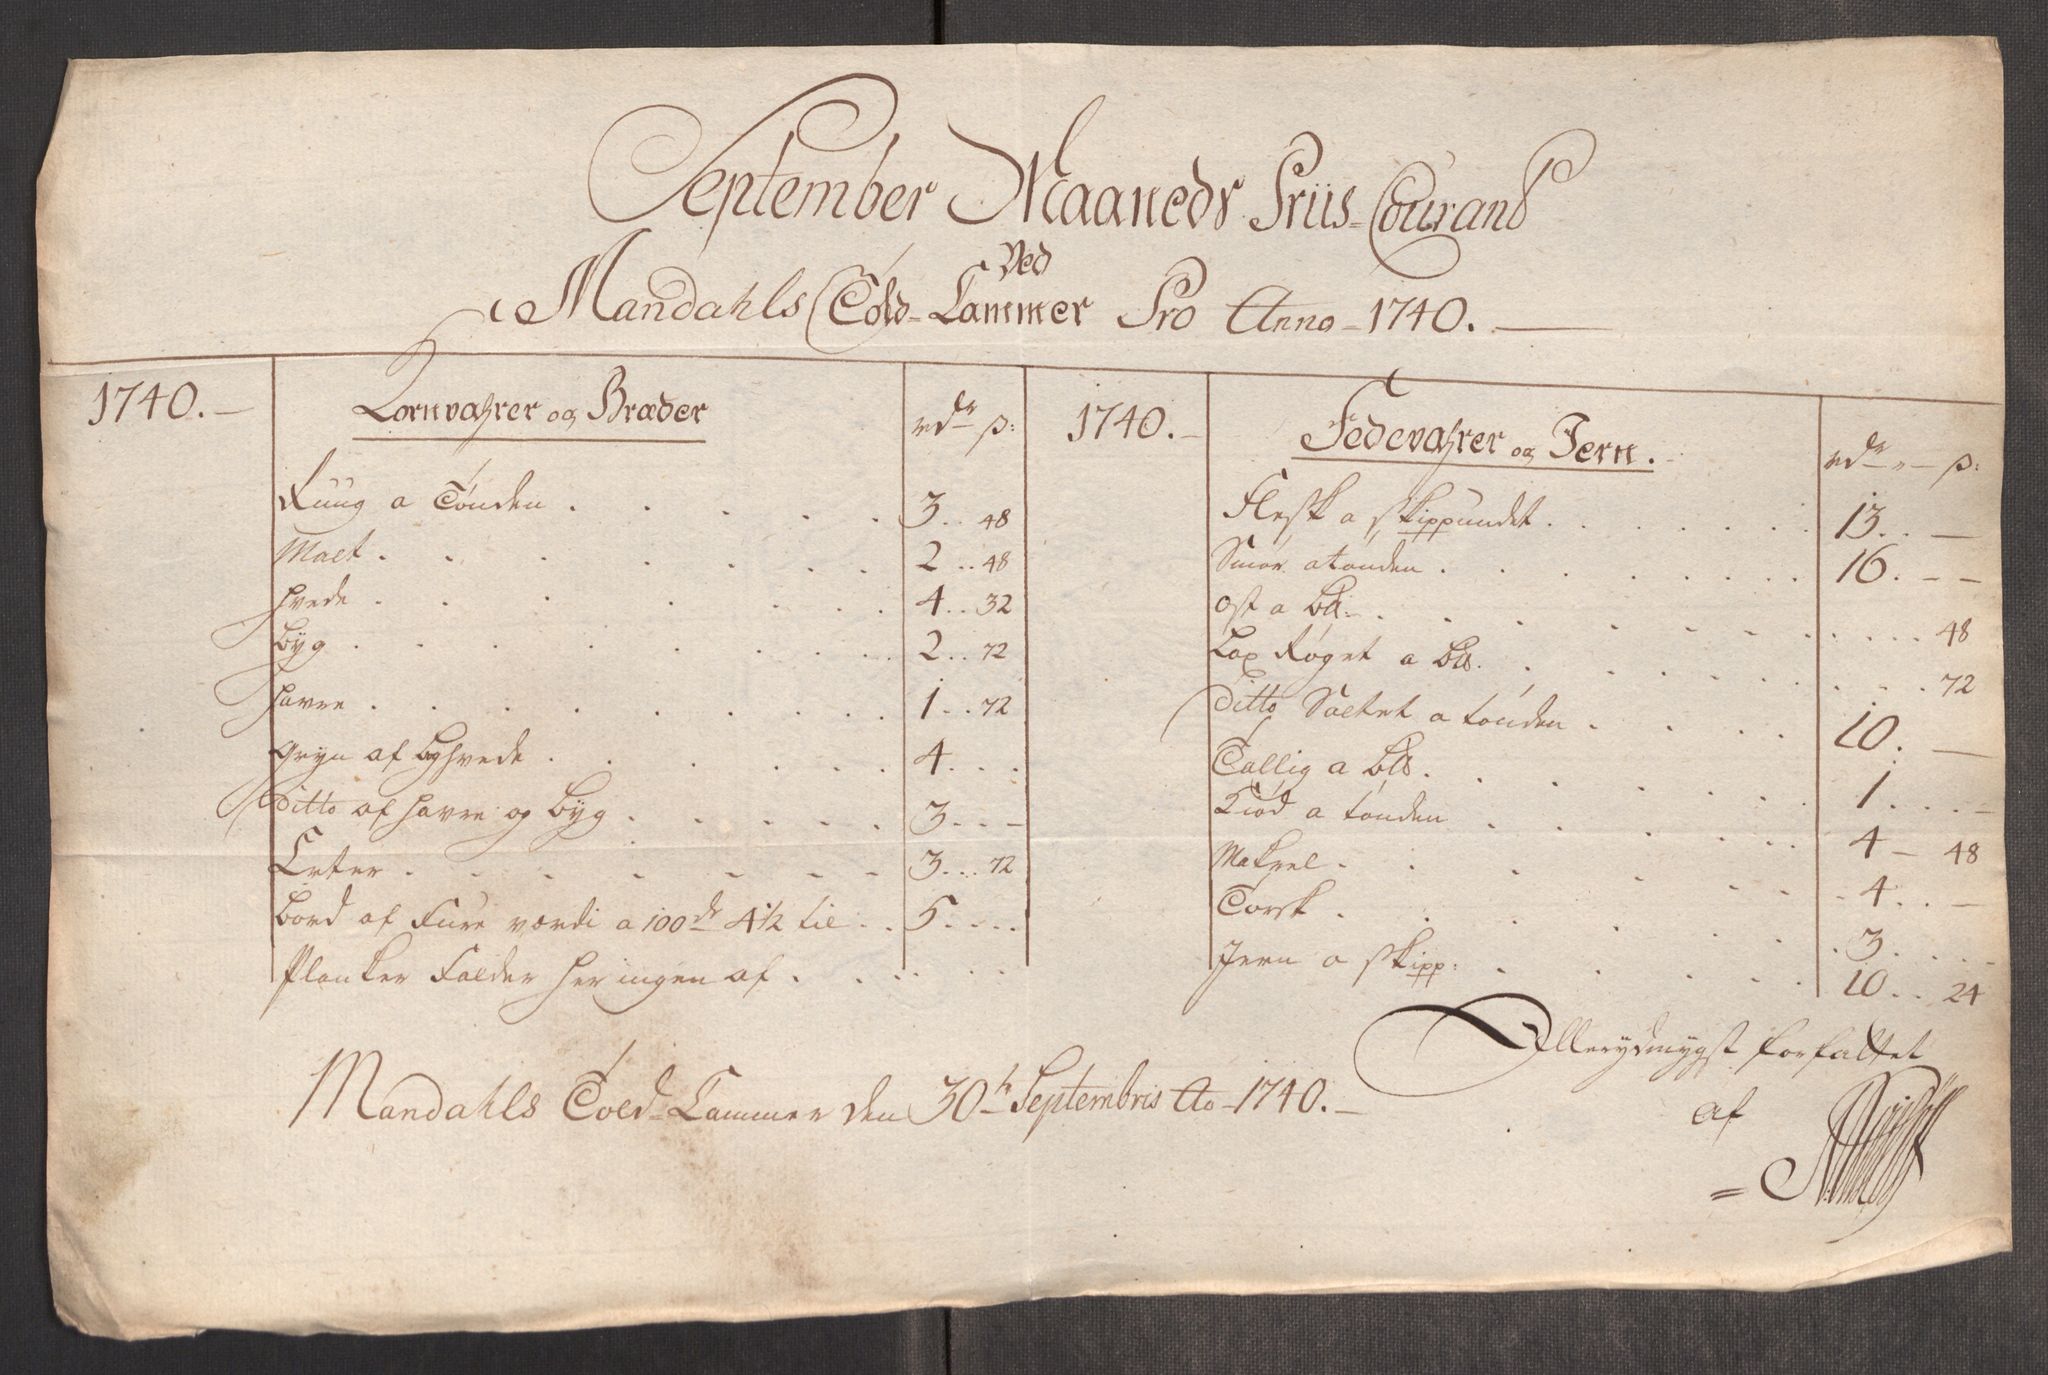 September Maaneds Priis-Courand
Ved
Mandahls Told-Cammer Pro Anno-1740.
1740.
Kornvahrer og Bræder
rdr ß:
Ruug a Tønden . . . . . 3.. 48
Malt . . . . . . . 2.. 48
Hvede . . . . . . 4.. 32
Byg . . . . . . . 2.. 72
Havre . . . . . . . 1.. 72
Gryn af boghvede . . . . . . 4...
Ditto af Havre og Byg . . . . . 3..-
Erter . . . . . . . 3... 72
Bord af Fure værdi a 100de 4½ til . . 5....
Planker Falder Her ingen af . . . . .
1740.
Fedevahrer og Jern.
rdr ß:
Flesk a skippundet . . . . . . 13..-
Smør a tønden . . . . . . . 16.--
Ost a Bß. . . . . . . . . . 48
Lax Røget a Bß. . . . . . . . . 72
Ditto Saltet a tønden . . . . 10.-
Tallig a Bß. . . . . . . 1...-
Kiød a tønden . . . . . . 4- 48
Makrel . . . . . . . 4..-
Torsk . . . . . . . 3...-
Jern a skipp: . . . . . 10.. 24
Mandahls Told-Cammer den 30te Septembris Ao-1740.
Allerydmygst forfattet
af